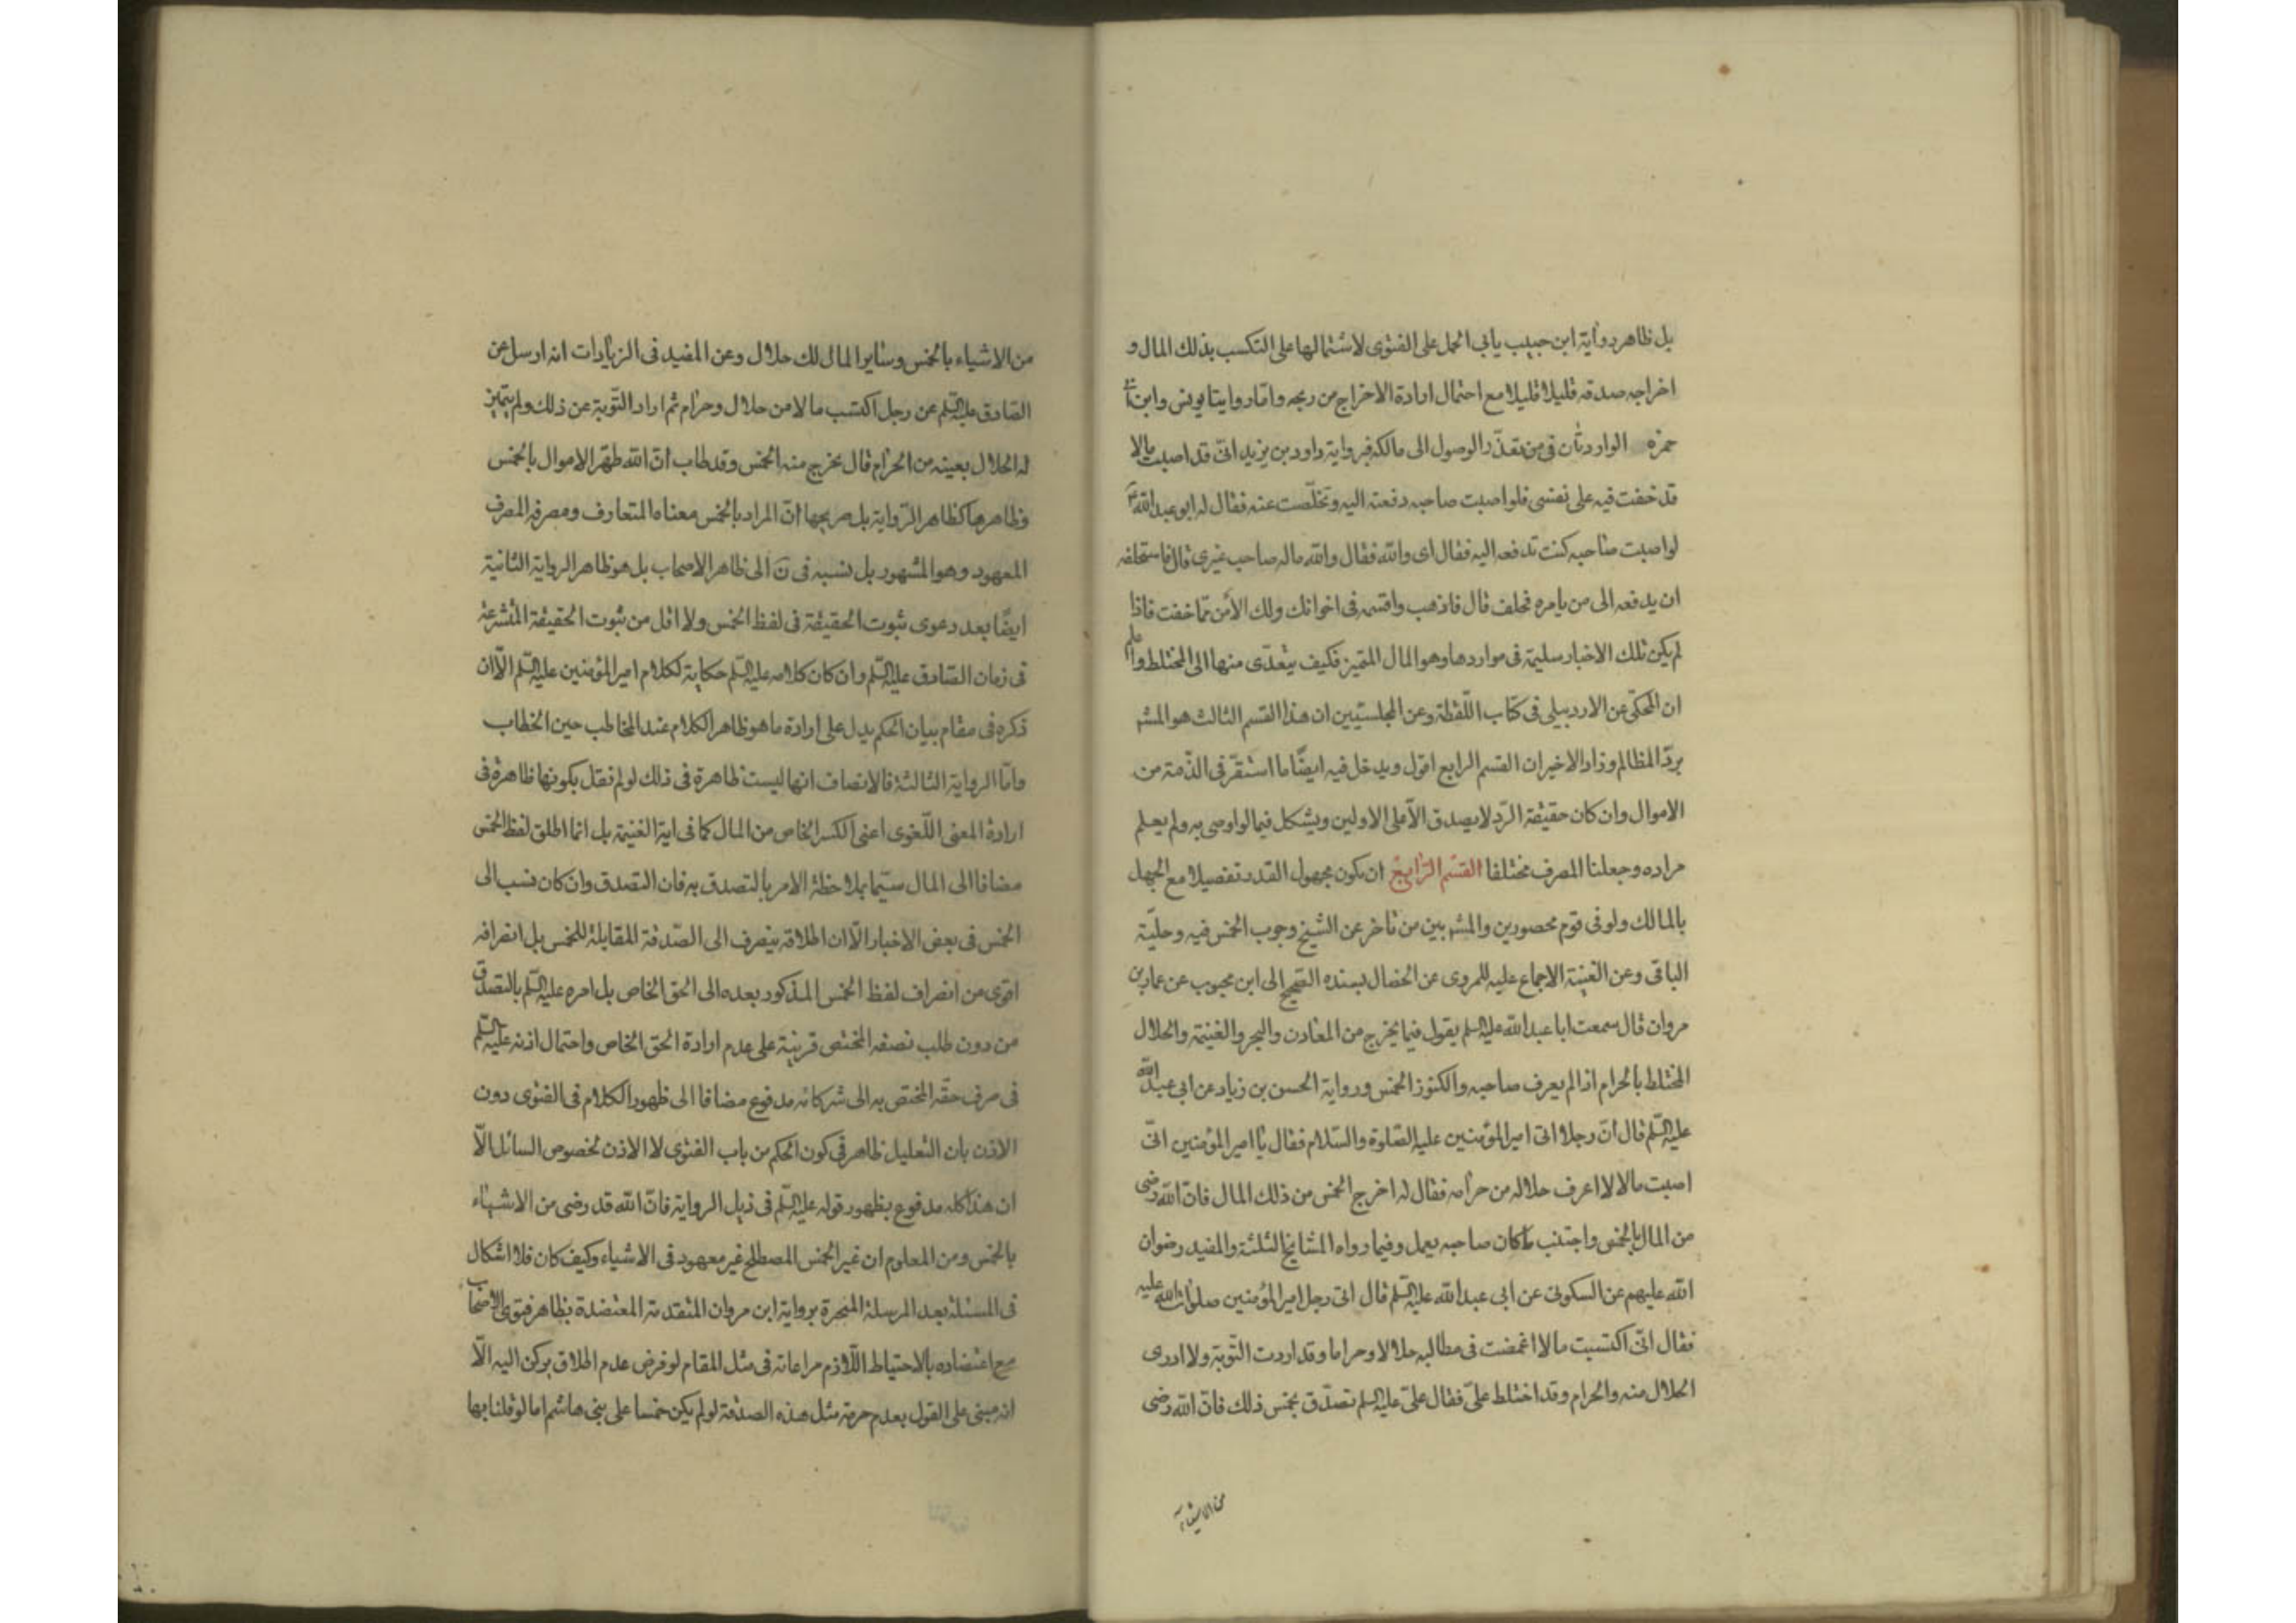 بل ظاهر رواية ابن حبيب يابى الحمل على الفتوى لاشتمالها على التكسب بذلك المال و
اخراجه صدقه قليلا قليلا مع احتمال ارادة الاخراج من ربحه وامّا روايتا يونس وابن ابى
حمزه الواردتان فى من تعذّر الوصول الى مالكه فبرواية داود بن يزيد انّى قد اصبت مالا
قد خفت فيه على نفسى فلو اصبت صاحبه دفعته اليه وتخلّصت عنه فقال له ابو عبد الله ع
لو اصبت صاحبه كنت تدفعه اليه فقال اى والله فقال والله ماله صاحب غيرى قال فاستحلفه
ان يدفعه الى من يامره فحلف قال فاذهب واقسمه فى اخوانك ولك الأمن ممّا خفت فاذا
لم يكن تلك الاخبار سليمة فى مواردها وهو المال المتميز فكيف يتعدّى منها الى المختلط واعلم
ان المحكّى عن الاردبيلى فى كتاب اللّقطة وعن المجلسيّين ان هذا القسم الثالث هو المسّ‍
بردّ المظالم وزاد الاخير ان القسم الرابع اقول ويدخل فيه ايضًا ما استقرّ فى الذّمة من
الاموال وان كان حقيقة الرّد لا يصدق الّا على الاولين ويشكل فيما لو اوصى به ولم يعلم
مراده وجعلنا المصرف مختلفا القسم الرّابع ان يكون مجهول القدر تفصيلا مع الجهل
بالمالك ولو فى قوم محصورين والمشه بين من تاخر عن الشيخ وجوب الخمس فيه وحلّية
الباقى وعن الغنية الاجماع عليه للمروى عن الخصال بسنده الصّحيح الى ابن محبوب عن عمار بن
مروان قال سمعت ابا عبد الله عليه السلم يقول فيما يخرج من المعادن والبحر والغنيمة والحلال
المختلط بالحرام اذا لم يعرف صاحبه والكنوز الخمس ورواية الحسن بن زياد عن ابى عبد الله
عليه السّلم قال انّ رجلا اتى امير المؤمنين عليه الصّلوة والسّلام فقال يا امير المؤمنين انّى
اصبت مالا لا اعرف حلاله من حرامه فقال له اخرج الخمس من ذلك المال فانّ الله رضى
من المال بالخمس واجتنب ما كان صاحبه يعمل وفيما رواه المشايخ الثلثة والمفيد رضوان
الله عليهم عن السكونى عن ابى عبد الله عليه السّلم قال اتى رجل امير المؤمنين صلوات الله عليه
فقال انّى اكتسبت مالا اغمضت فى مطالبه حلالا وحراما وقد اردت التّوبة ولا ادرى
الحلال منه والحرام وقد اختلط علىّ فقال علىّ عليه السلم تصدّق بخمس ذلك فانّ الله رضى
من الاشياء
من الاشياء بالخمس وساير المال لك حلال وعن المفيد فى الزيادات انه ارسل عن
الصّادق عليه السّلم عن رجل اكتسب مالا من حلال وحرام ثم اراد التّوبة عن ذلك ولم يتميز
له الحلال بعينه من الحرام قال يخرج منه الخمس وقد طاب انّ الله طهّر الاموال بالخمس
وظاهرها كظاهر الرّواية بل صريحها انّ المراد بالخمس معناه المتعارف ومصرفه المصرف
المعهود وهو المشهور بل نسبه فى ن الى ظاهر الاصحاب بل هو ظاهر الرواية الثانية
ايضًا بعد دعوى ثبوت الحقيقة فى لفظ الخمس ولا اقل من ثبوت الحقيقة المتشرعة
فى زمان الصّادق عليه السّلم وان كان كلامه عليه السّلم حكاية لكلام امير المؤمنين عليه السّلم الّا ان
ذكره فى مقام بيان الحكم يدل على ارادة ما هو ظاهر الكلام عند المخاطب حين الخطاب
وامّا الرواية الثالثة فالانصاف انها ليست ظاهرة فى ذلك لو لم نقل بكونها ظاهرة فى
ارادة المعنى اللّغوى اعنى الكسر الخاص من المال كما فى اية الغنيمة بل انما اطلق لفظ الخمس
مضافا الى المال سيّما بملاحظة الامر بالتصدق به فان التصدق وان كان نسب الى
الخمس فى بعض الاخبار الّا ان اطلاقه ينصرف الى الصّدقة المقابلة للخمس بل انصرافه
اقوى من انصراف لفظ الخمس المذكور بعده الى الحق الخاص بل امره عليه السّلم بالتصدّق
من دون طلب نصفه المختص قرينة على عدم ارادة الحق الخاص واحتمال اذنه عليه السّلم
فى صرف حقّه المختص به الى شركائه مدفوع مضافا الى ظهور الكلام فى الفتوى دون
الاذن بان التعليل ظاهر فى كون الحكم من باب الفتوى لا الاذن لخصوص السائل الّا
ان هذا كله مدفوع بظهور قوله عليه السّلم فى ذيل الرواية فانّ الله قد رضى من الاشياء
بالخمس ومن المعلوم ان غير الخمس المصطلح غير معهود فى الاشياء وكيف كان فلا اشكال
فى المسئلة بعد المرسلة المنجبرة برواية ابن مروان المتقدمة المعتضدة بظاهر فتوى الاصحاب
مع اعتضاده بالاحتياط اللّازم مراعاته فى مثل المقام لو فرض عدم اطلاق يركن اليه الّا
انه مبنى على القول بعدم حرمة مثل هذه الصدقة لو لم يكن خمسا على بنى هاشم اما لو قلنا بها